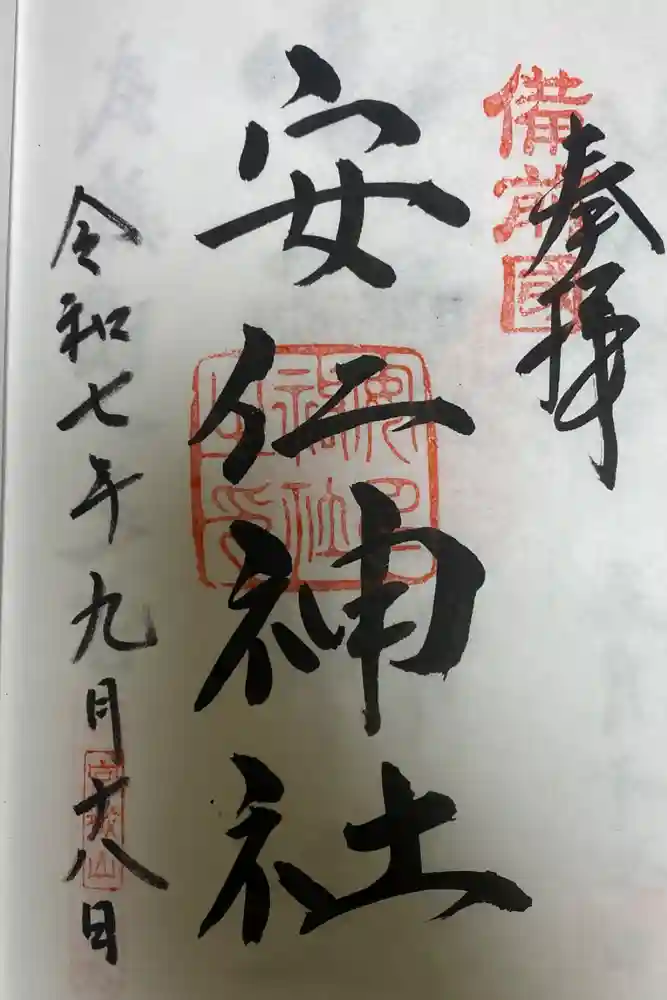 備前國
奉拝
安仁神社
令和七年九月十八日
宮城山